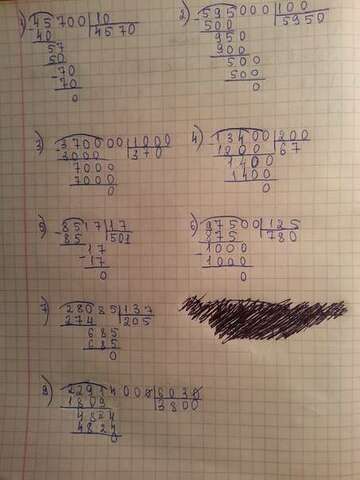 1) 45700 | 10
- 40 | 4570
57
50
- 70
70
0
2) 595000 | 100
- 500 | 5950
950
900
500
500
0
3) 370000 | 1000
- 3000 | 370
7000
7000
0
4) 13400 | 200
- 1200 | 67
1400
1400
0
5) 8517 | 17
- 85 | 501
17
- 17
0
6) 97500 | 125
- 875 | 780
1000
1000
0
7) 28085 | 137
274 | 205
685
685
0
8) 22914000 | 6030
1809 | 3800
4824
4824
0